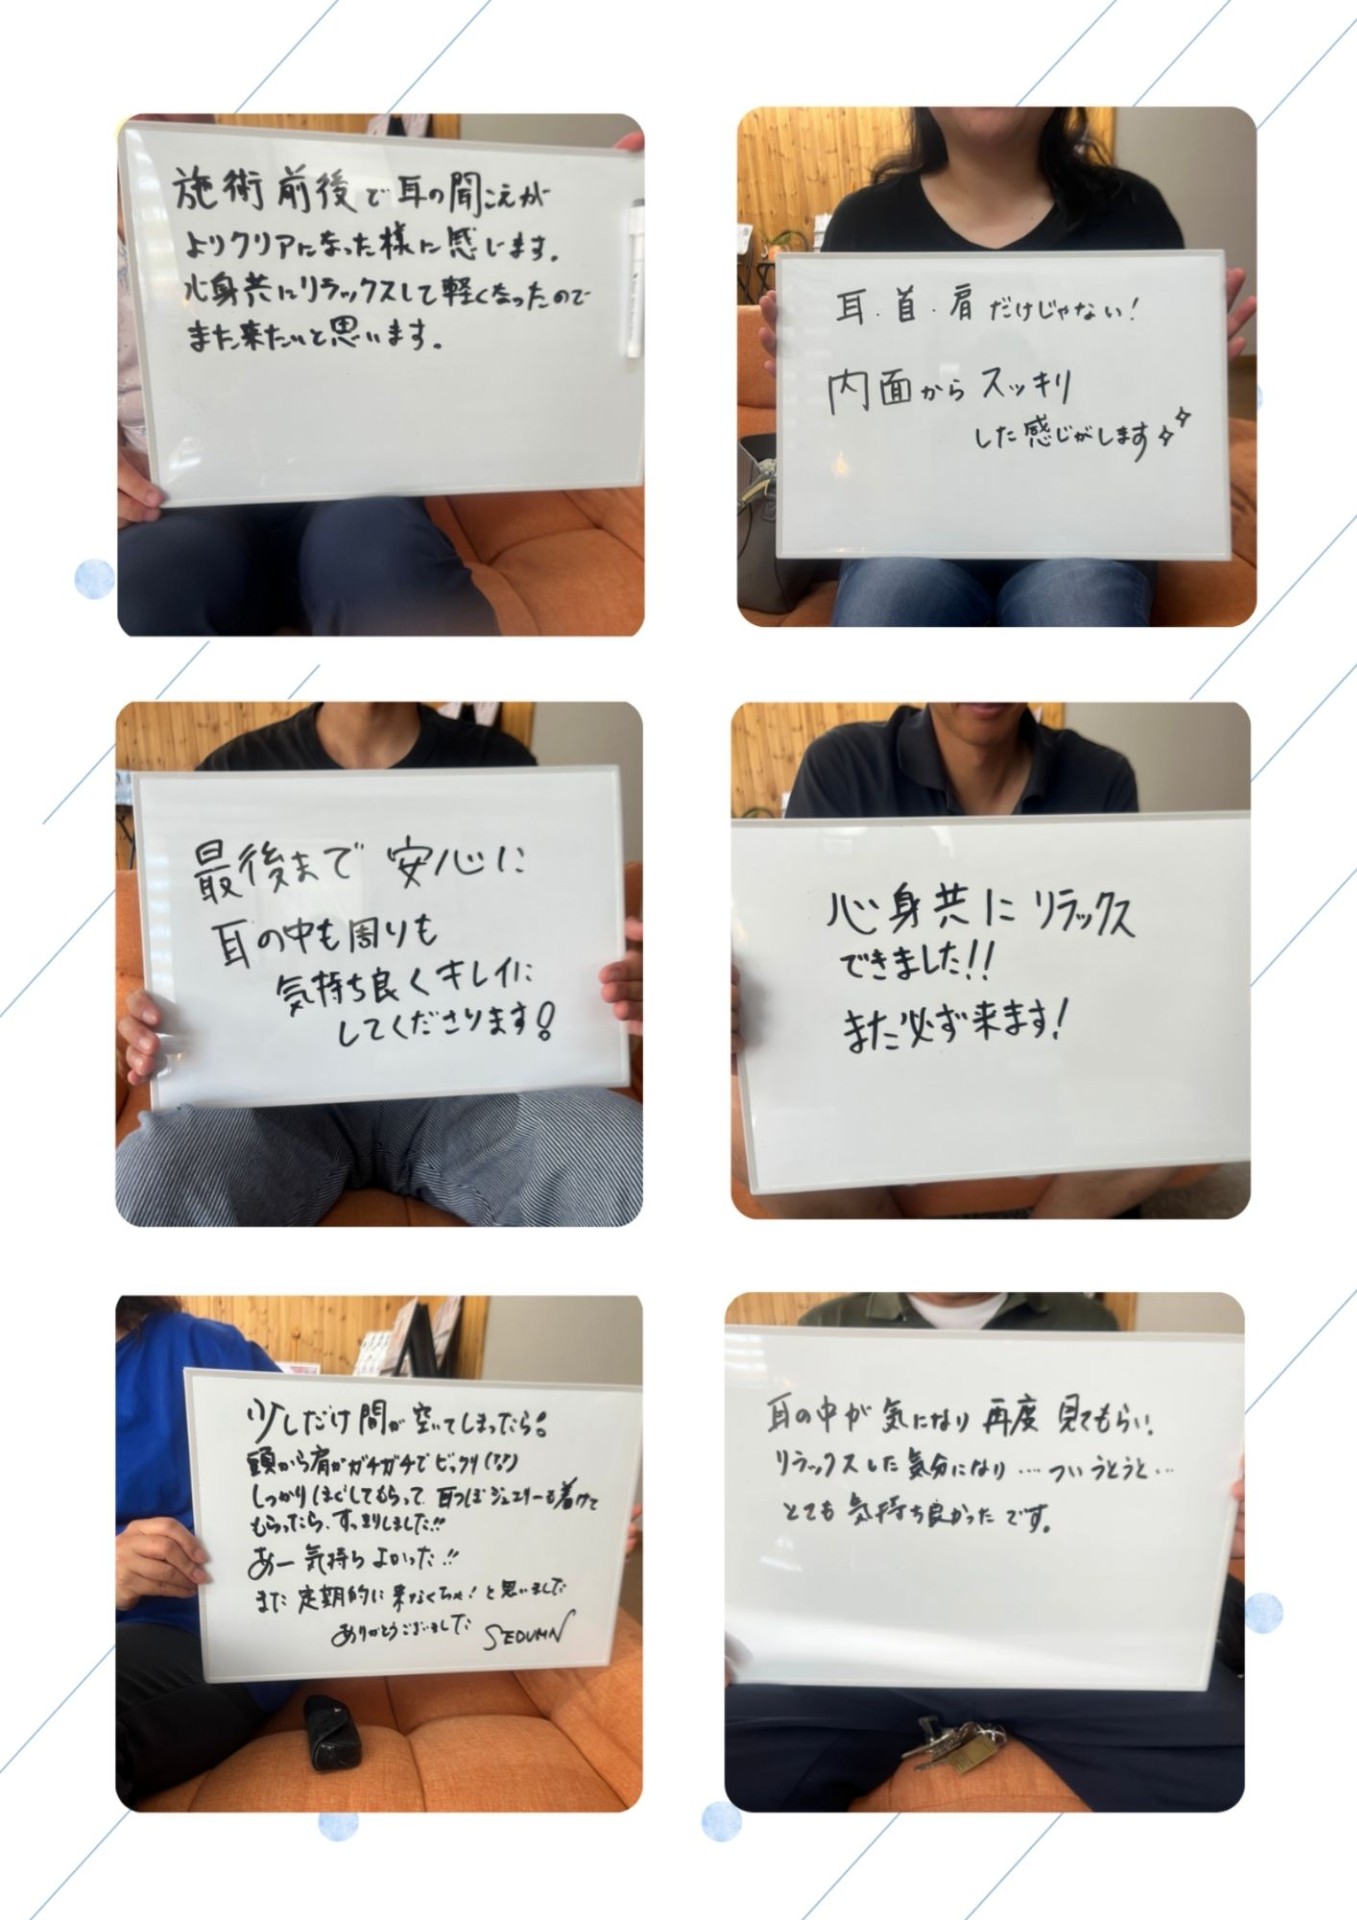 施術前後で耳の聞こえが
よりクリアになった様に感じます。
心身共にリラックスして軽くなったので
また来たいと思います。
耳・首・肩だけじゃない！
内面からスッキリ
した感じがします
最後まで安心に
耳の中も周りも
気持ち良くキレイに
してくださります！
心身共にリラックス
できました！！
また必ず来ます！
少しだけ間が空いてしまったら！
頭から肩がガチガチでビックリ
しっかりほぐしてもらって、耳つぼジュエリーも着けて
もらったら、すっきりしました！！
あー気持ちよかった！！
また定期的に来なくちゃ！と思いました
ありがとうございました SEDUMN
耳の中が気になり再度見てもらい！
リラックスした気分になり…ついうとうと…
とても気持ち良かったです。